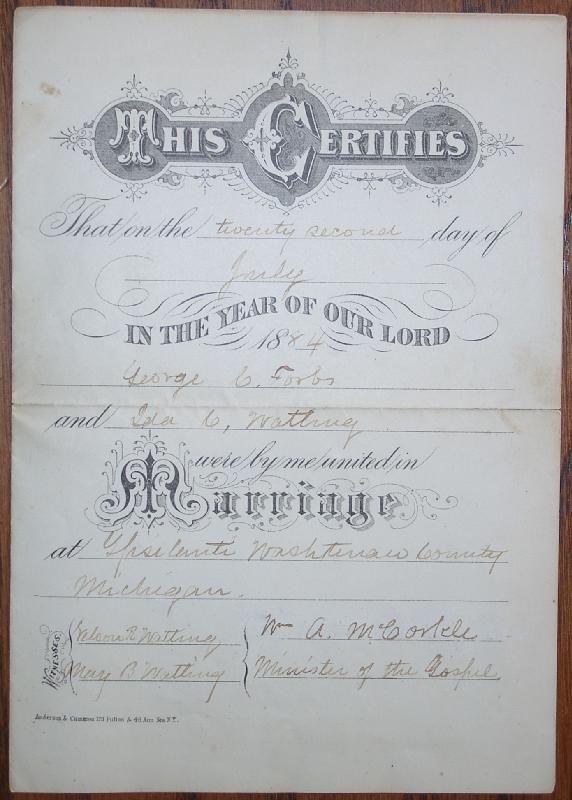 THIS CERTIFIES
That on the twenty second day of
July
IN THE YEAR OF OUR LORD
1884
George C. Forbs
and Ida C. Watling
were by me united in
Marriage
at Ypsilanti Washtenaw County
Michigan.
WITNESSES
Nelson R Watling
Mary B Watling
Wm A. McCorkle
Minister of the Gospel
Anderson & Cameron 173 Fulton & 4th Ave N.Y.